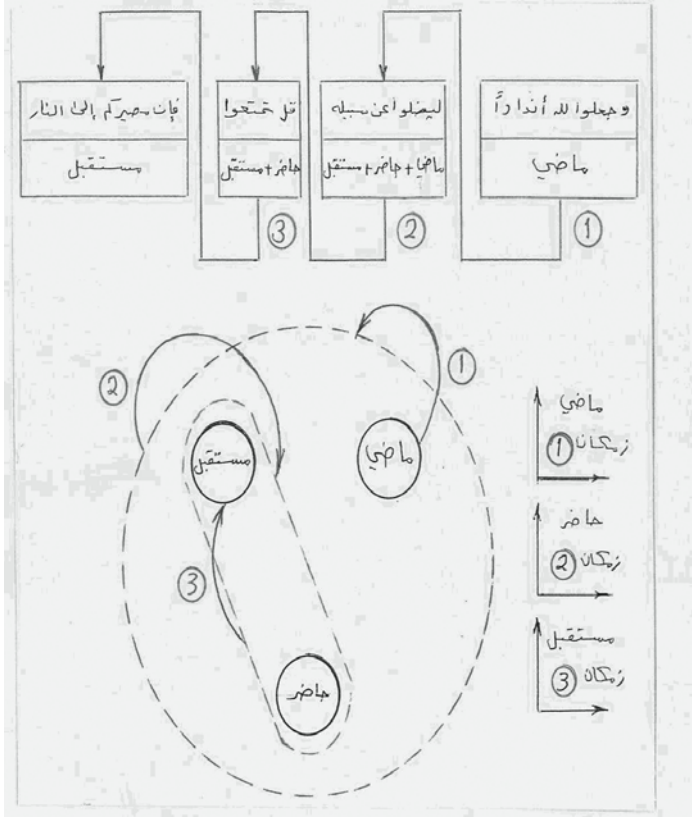 وجعلوا لله أنداداً
ماضي
ليضلوا عن سبيله
ماضي + حاضر + مستقبل
قل تمتعوا
حاضر + مستقبل
فإن مصيركم إلى النار
مستقبل
1
2
3
1
2
ماضي
مستقبل
3
حاضر
ماضي
زمكان 1
حاضر
زمكان 2
مستقبل
زمكان 3